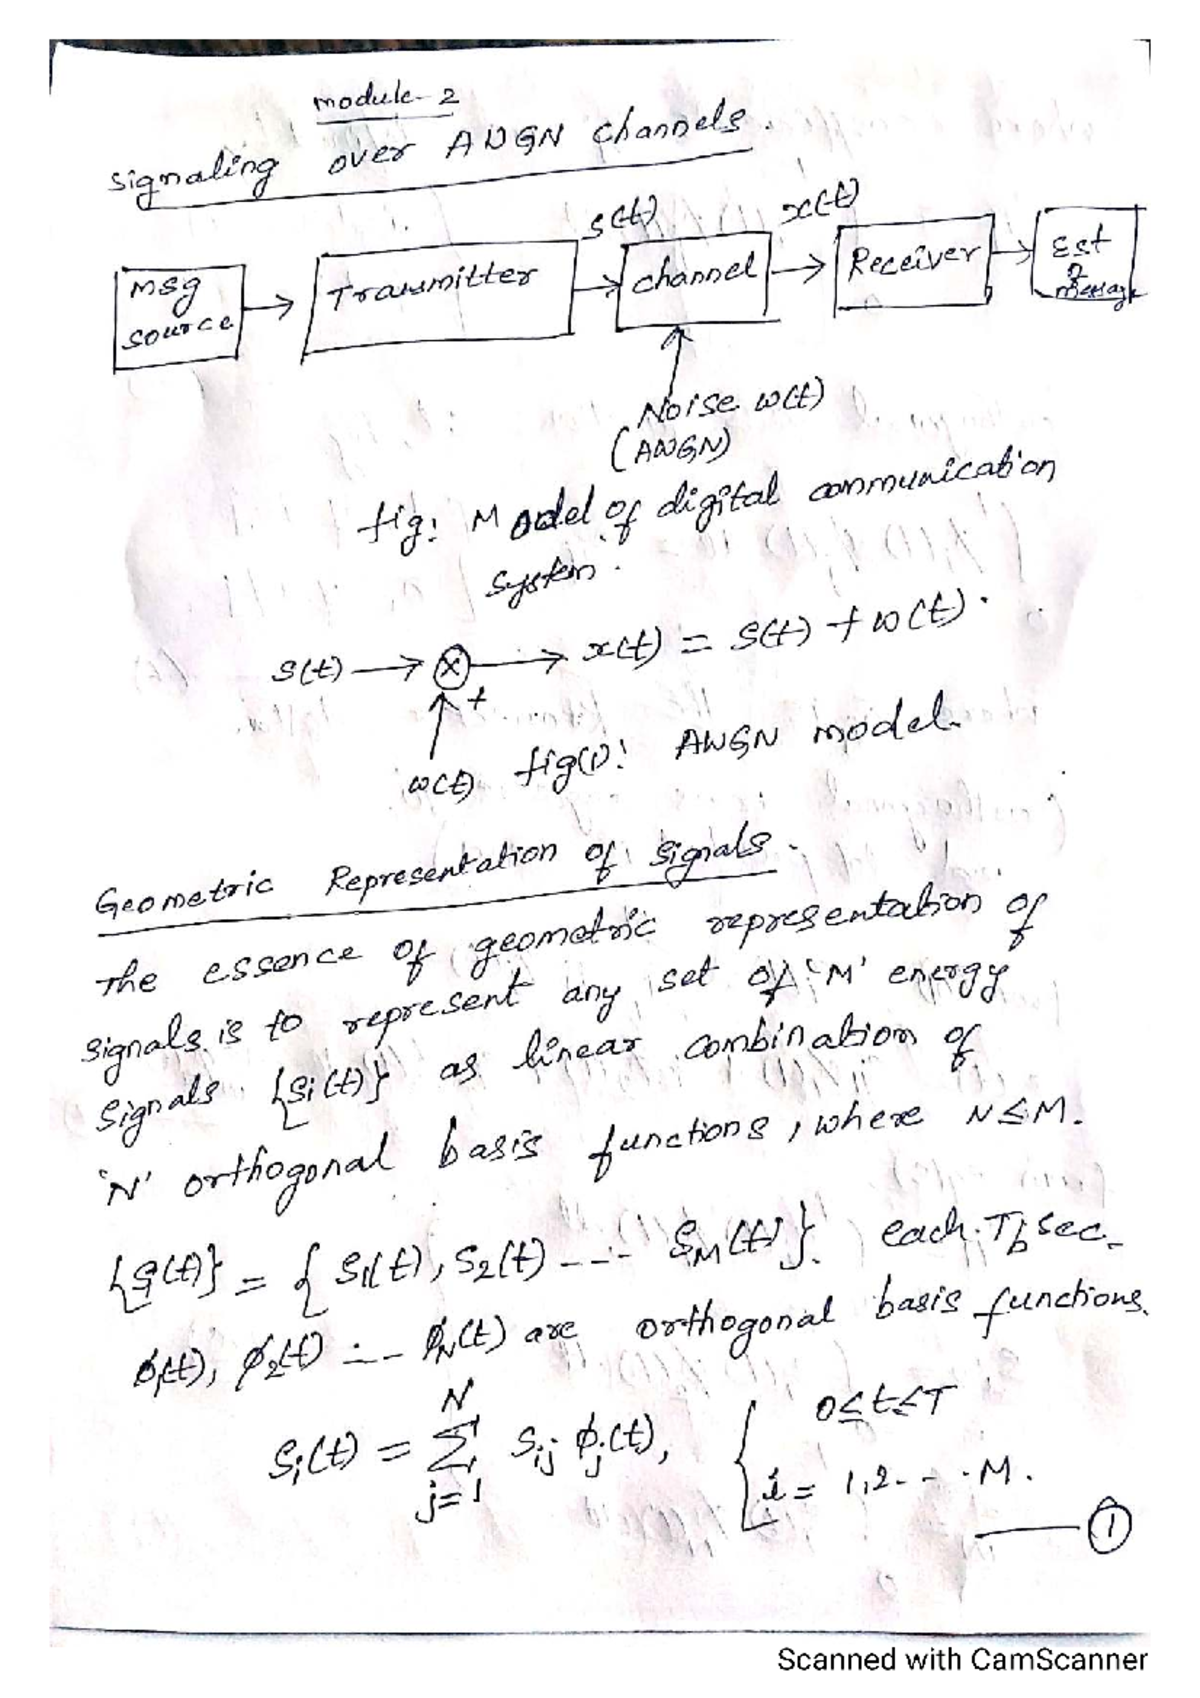 module-2
Signaling over AWGN channels.
s(t) x(t)
msg source
Transmitter
channel
Receiver
Est of message
Noise w(t)
(AWGN)
fig: Model of digital communication
system.
s(t) → ⊗ → x(t) = s(t) + w(t).
+
w(t) fig(1): AWGN model.
Geometric Representation of signals.
The essence of geometric representation of
signals is to represent any set of 'M' energy
signals {si(t)} as linear combination of
'N' orthogonal basis functions, where N≤M.
{si(t)} = { s1(t), s2(t) --- sM(t)}. each Tb sec.
ϕ1(t), ϕ2(t) --- ϕN(t) are orthogonal basis functions.
N
si(t) = Σ sij ϕj(t), { 0≤t≤T
j=1 i = 1,2- - - M.
—— ①
Scanned with CamScanner